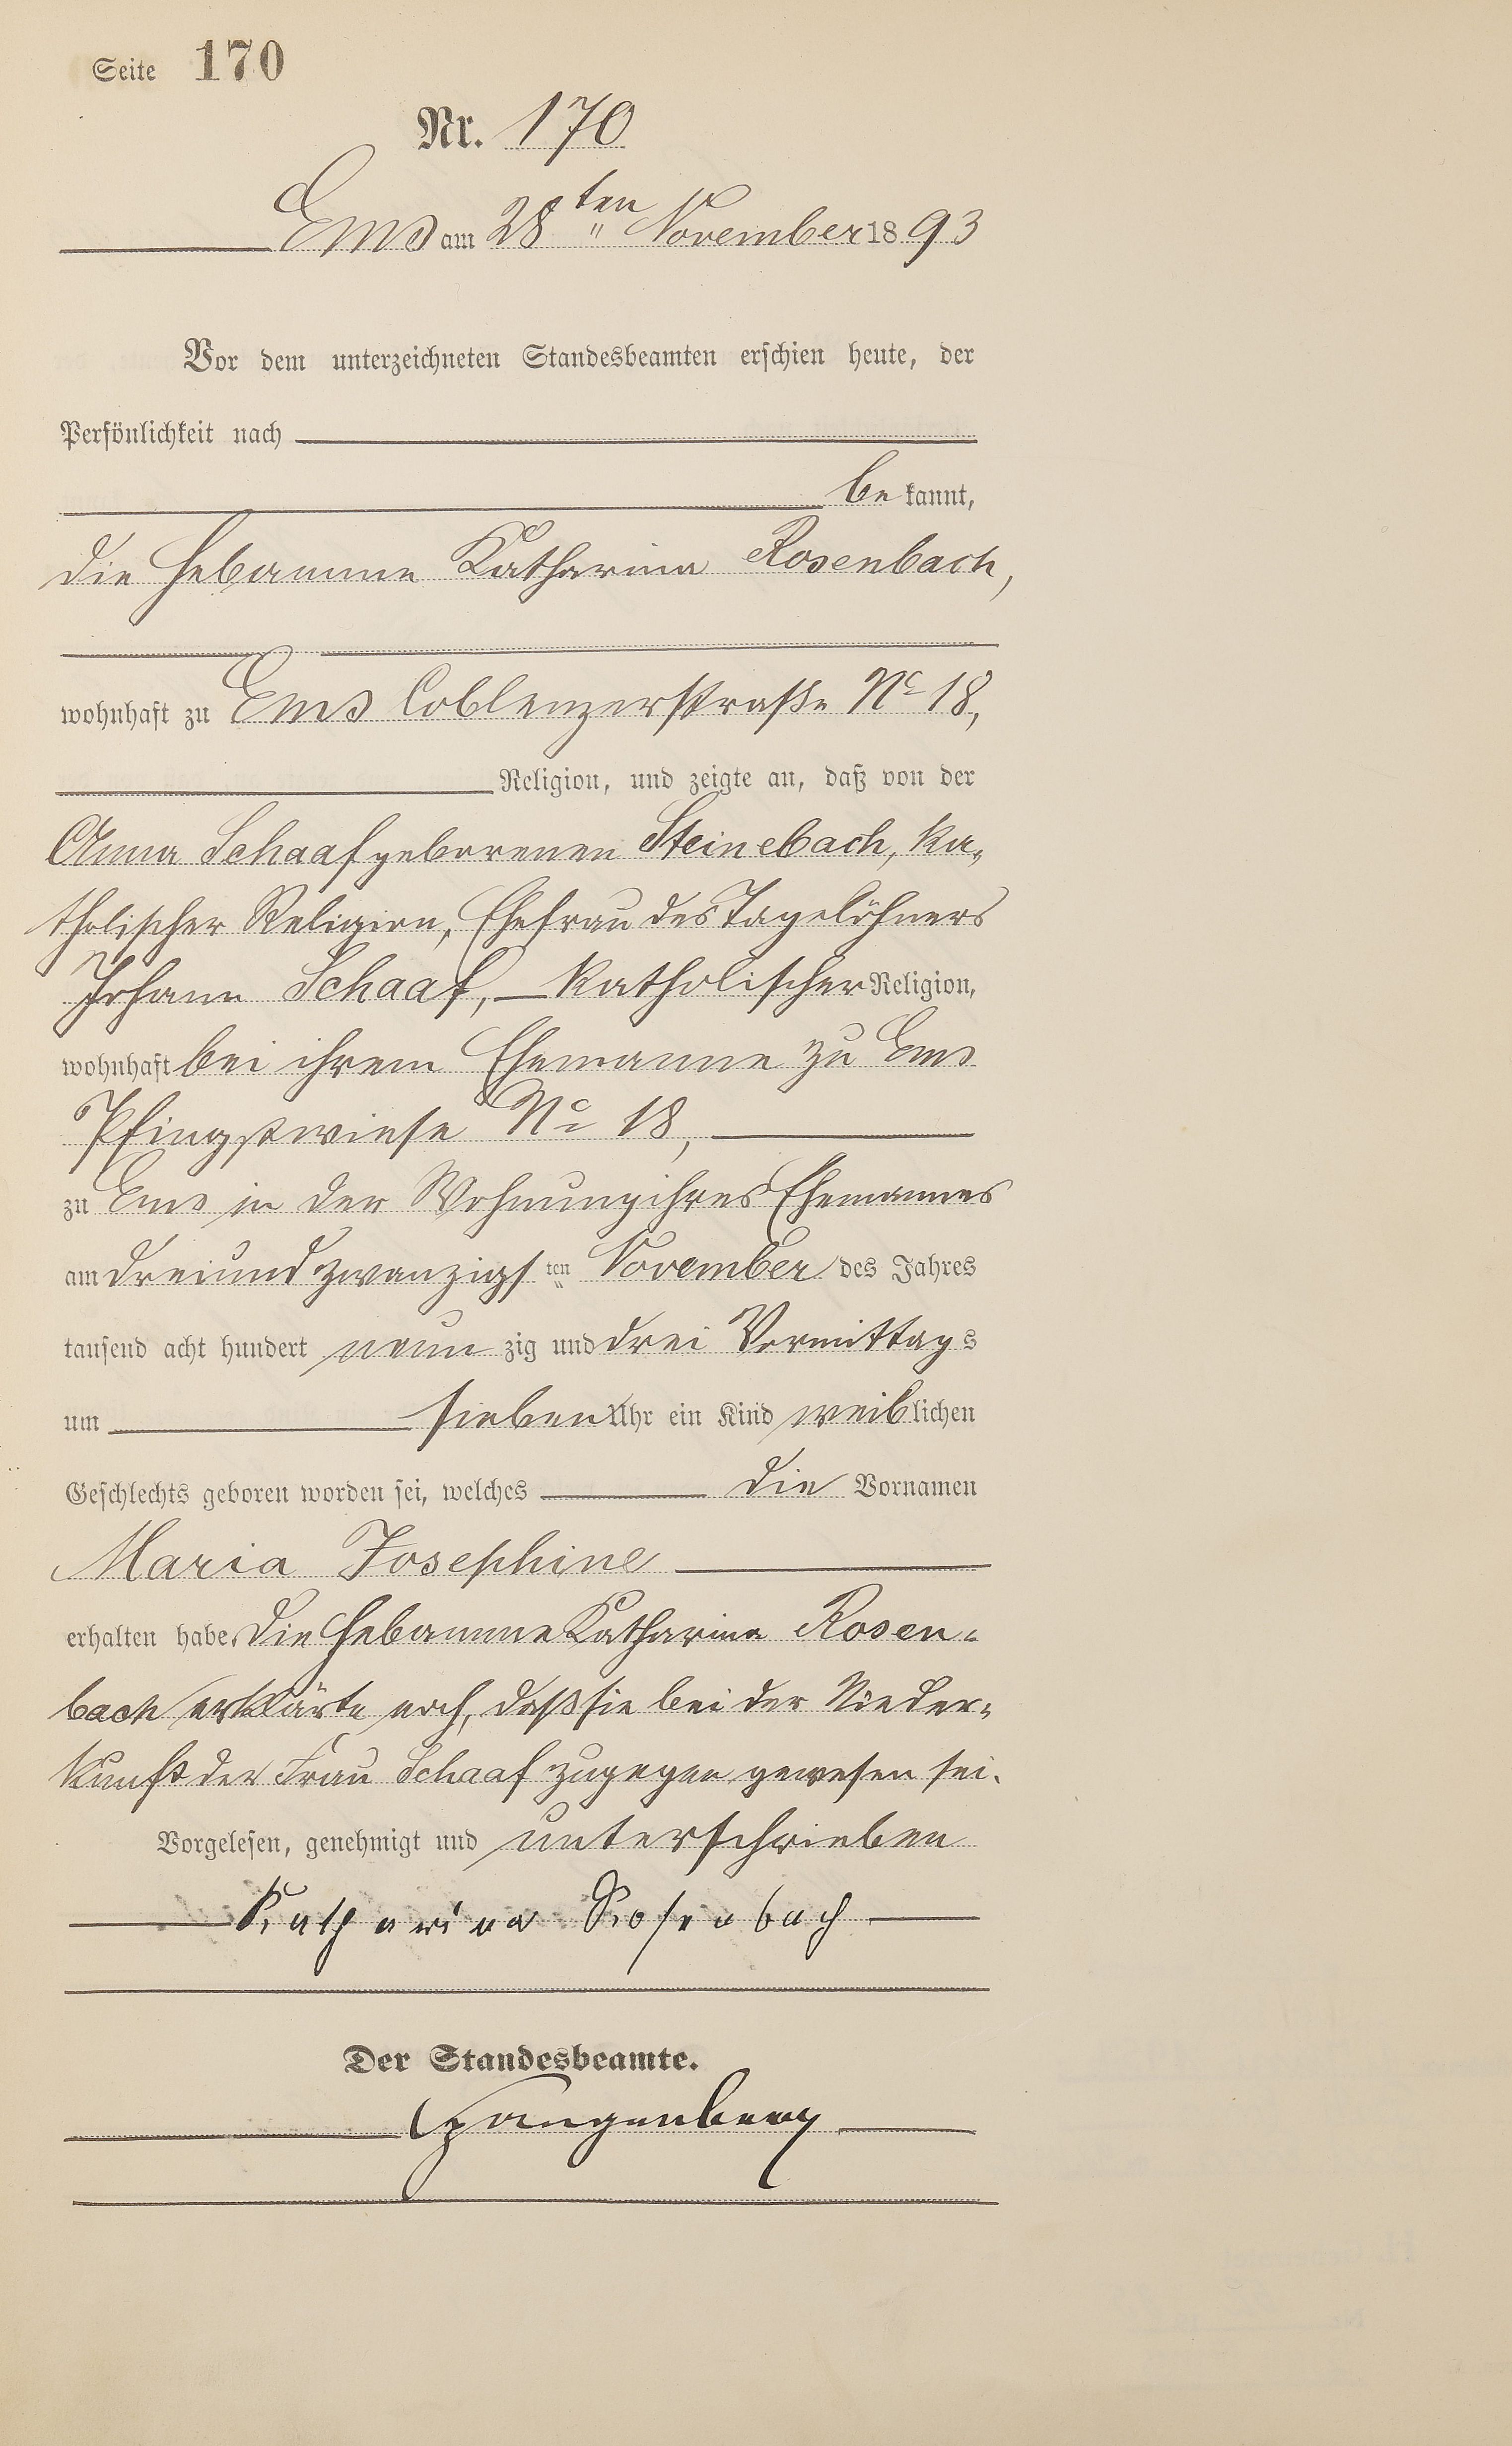 Seite 170
Nr. 170
Ems am 28ten November 1893
Vor dem unterzeichneten Standesbeamten erschien heute, der
Persönlichkeit nach
bekannt,
die Hebamme Katharina Rosenbach,
wohnhaft zu Ems Coblenzerstraße No 18,
Religion, und zeigte an, daß von der
Anna Schaaf geborenen Steinebach, ka-
tholischer Religion, Ehefrau des Tagelöhners
Johann Schaaf, katholischer Religion,
wohnhaft bei ihrem Ehemanne zu Ems
Pfingstwiese No 18,
zu Ems in der Wohnung ihres Ehemannes
am dreiundzwanzigsten November des Jahres
tausend acht hundert neunzig und drei Vormittags
um sieben Uhr ein Kind weiblichen
Geschlechts geboren worden sei, welches die Vornamen
Maria Josephine
erhalten habe. Die Hebamme Katharina Rosen-
bach erklärte noch, daß sie bei der Nieder-
kunft der Frau Schaaf zugegen gewesen sei.
Vorgelesen, genehmigt und unterschrieben
Katharina Rosenbach
Der Standesbeamte.
Spangenberg